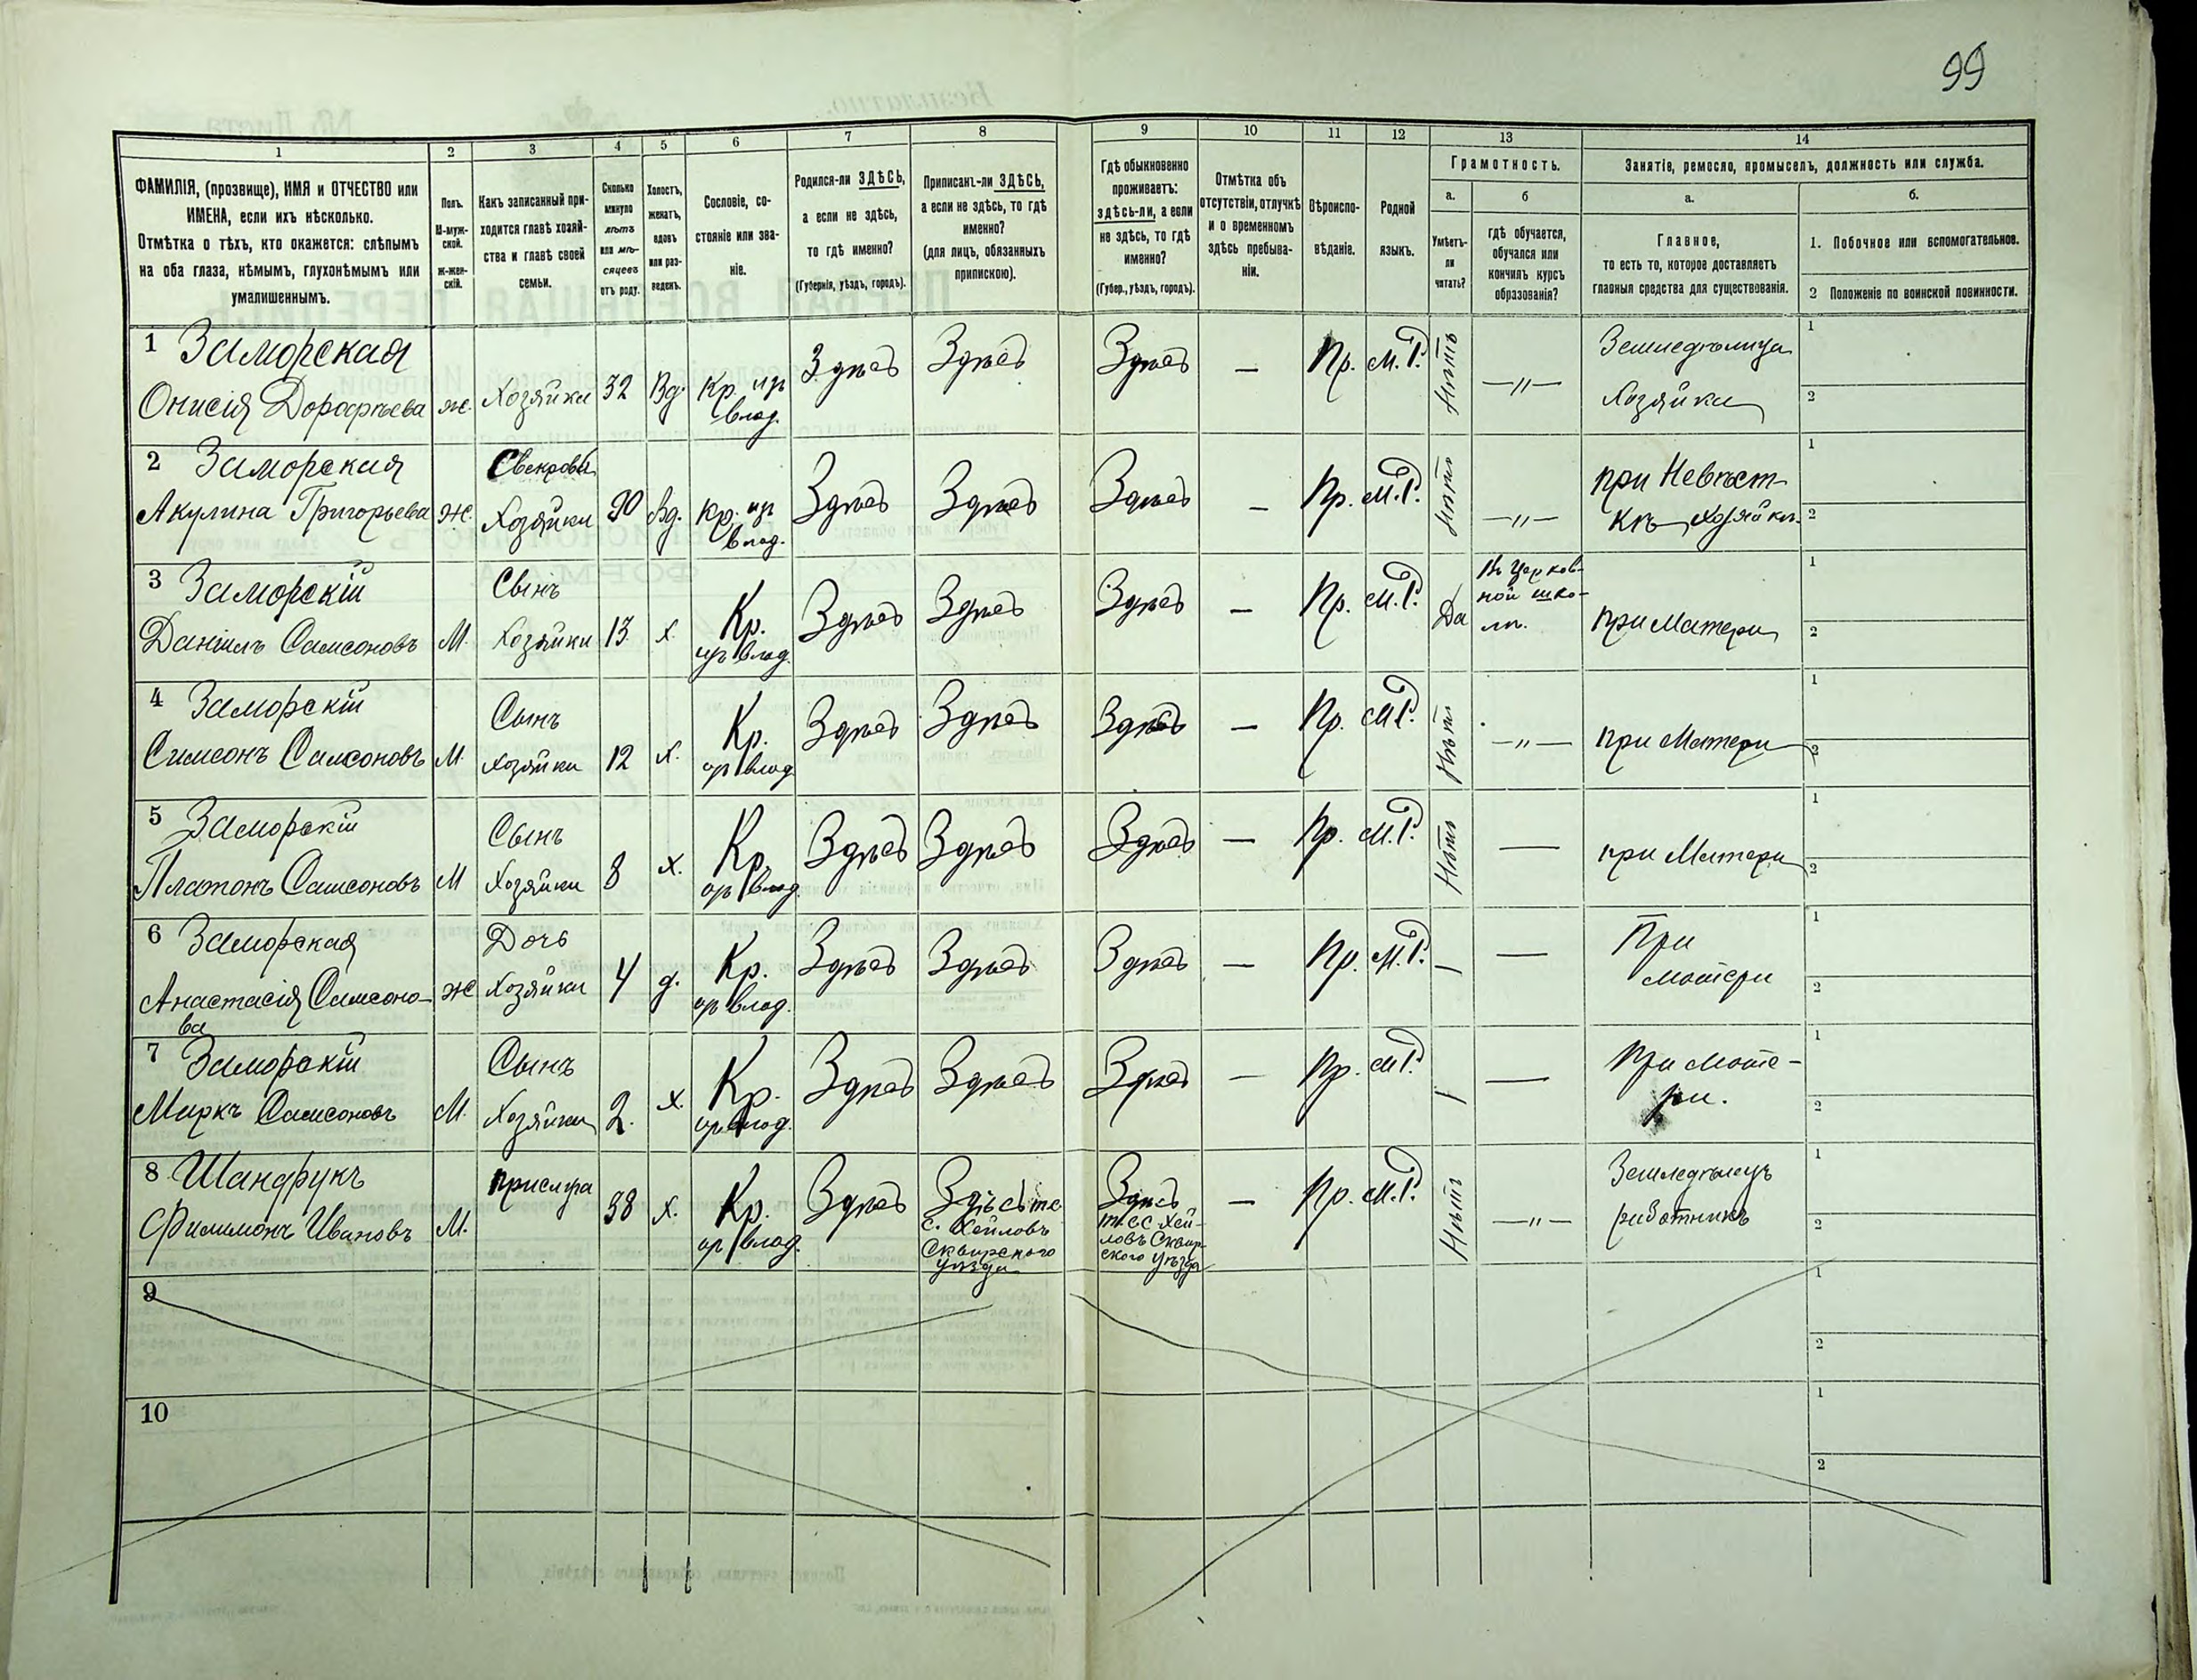 99
1
2
3
4
5
6
7
8
9
10
11
12
13
14
ФАМИЛІЯ, (прозвище), ИМЯ и ОТЧЕСТВО или
ИМЕНА, если ихъ нѣсколько.
Отмѣтка о тѣхъ, кто окажется: слѣпымъ
на оба глаза, нѣмымъ, глухонѣмымъ или
умалишеннымъ.
Полъ.
М-муж-
ской.
ж-жен-
скій.
Какъ записанный при-
ходится главѣ хозяй-
ства и главѣ своей
семьи.
Сколько
минуло
лѣтъ
или мѣ-
сяцевъ
отъ роду.
Холостъ,
женатъ,
вдовъ
или раз-
веденъ.
Сословіе, со-
стояніе или зва-
ніе.
Родился-ли ЗДѢСЬ,
а если не здѣсь,
то гдѣ именно?
(Губернія, уѣздъ, городъ).
Приписанъ-ли ЗДѢСЬ,
а если не здѣсь, то гдѣ
именно?
(для лицъ, обязанныхъ
припискою).
Гдѣ обыкновенно
проживаетъ:
здѣсь-ли, а если
не здѣсь, то гдѣ
именно?
(Губер., уѣздъ, городъ).
Отмѣтка объ
отсутствіи, отлучкѣ
и о временномъ
здѣсь пребыва-
ніи.
Вѣроиспо-
вѣданіе.
Родной
языкъ.
Грамотность.
а.
Умѣетъ-
ли
читать?
б
гдѣ обучается,
обучался или
кончилъ курсъ
образованія?
Занятіе, ремесло, промыселъ, должность или служба.
а.
Главное,
то есть то, которое доставляетъ
главныя средства для существованія.
б.
1. Побочное или вспомогательное.
2 Положеніе по воинской повинности.
1 Заморская
Онисія Дорофѣева
ж.
Хозяйка
32
Вд.
Кр. изъ
влад.
Здѣсь
Здѣсь
Здѣсь
—
Пр.
М.Р.
Нѣтъ
—"—
Земледѣлица
Хозяйка
1
2
2 Заморская
Акулина Григорьева
ж.
Свекровь
Хозяйки
90
Вд.
Кр. изъ
влад.
Здѣсь
Здѣсь
Здѣсь
—
Пр.
М.Р.
Нѣтъ
—"—
при Невѣст-
кѣ Хозяйкѣ
1
2
3 Заморскій
Даніилъ Самсоновъ
М.
Сынъ
Хозяйки
13
х.
Кр.
изъ влад.
Здѣсь
Здѣсь
Здѣсь
—
Пр.
М.Р.
Да
Въ Церков-
ной шко-
лѣ.
при Матери
1
2
4 Заморскій
Симеонъ Самсоновъ
М.
Сынъ
Хозяйки
12
х.
Кр.
изъ влад.
Здѣсь
Здѣсь
Здѣсь
—
Пр.
М.Р.
Нѣтъ
—"—
при Матери
1
2
5 Заморскій
Платонъ Самсоновъ
М
Сынъ
Хозяйки
8
х.
Кр.
изъ влад.
Здѣсь
Здѣсь
Здѣсь
—
Пр.
М.Р.
Нѣтъ
—
при Матери
1
2
6 Заморская
Анастасія Самсоно-
ва
ж
Дочь
Хозяйки
4
д.
Кр.
изъ влад.
Здѣсь
Здѣсь
Здѣсь
—
Пр.
М.Р.
—
—
При
матери
1
2
7 Заморскій
Маркъ Самсоновъ
М.
Сынъ
Хозяйки
2.
х.
Кр.
изъ влад.
Здѣсь
Здѣсь
Здѣсь
—
Пр.
М.Р.
—
—
При мате-
ри.
1
2
8 Шандрукъ
Филимонъ Ивановъ
М.
прислуга
38
х.
Кр.
изъ влад.
Здѣсь
Здѣсь т. е.
с. Хейловъ
Сквирского
уѣзда
Здѣсь
т. е с Хей-
ловъ Сквир-
ского уѣзда
—
Пр.
М.Р.
Нѣтъ
—"—
Земледѣлецъ
работникъ
1
2
9
1
2
10
1
2